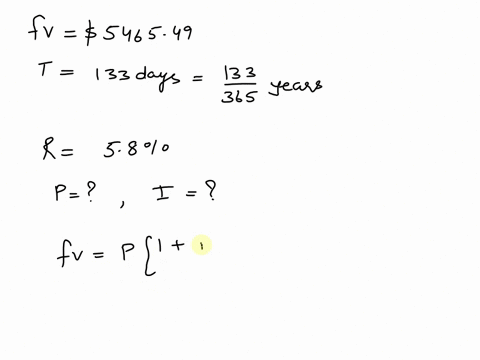 fv = $ 5465.49
T = 133 days = 133/365 years
R = 5.8%
P = ? , I = ?
fv = P [ 1 +